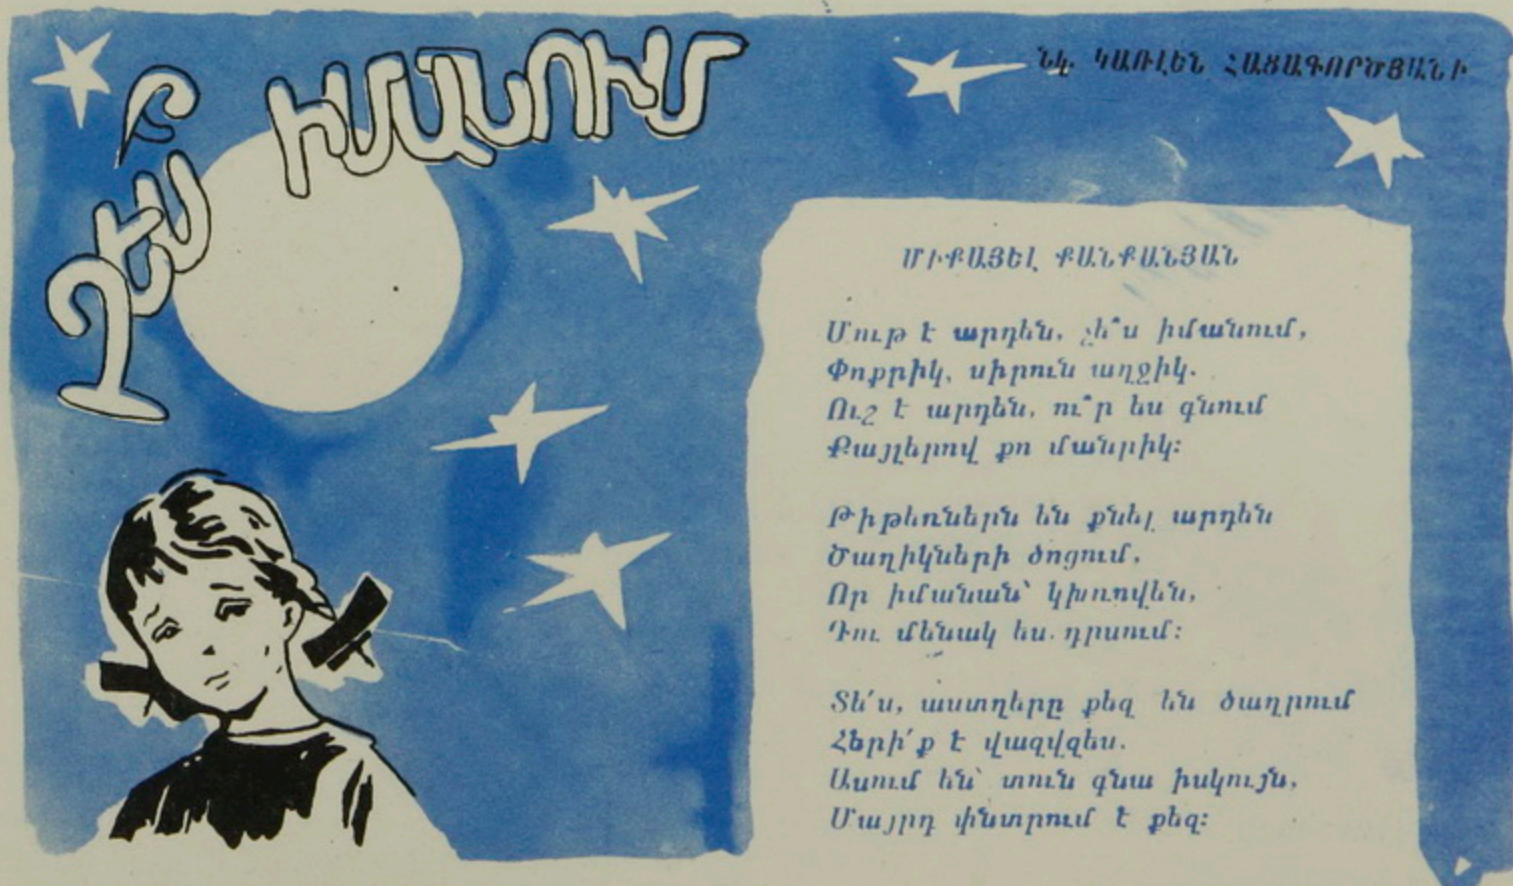 Չե՞ս ԻՄԱՆՈՒՄ
ՆԿ. ԿԱՌԼԵՆ ՀԱՑԱԳՈՐԾՅԱՆԻ
ՄԻՔԱՅԵԼ ՔԱՆՔԱՆՅԱՆ
Մութ է արդեն, չե՞ս իմանում,
Փոքրիկ, սիրուն աղջիկ.
Ուշ է արդեն, ու՞ր ես գնում
Քայլերով քո մանրիկ։
Թիթեռներն են քնել արդեն
Ծաղիկների ծոցում,
Որ իմանան՝ կխռովեն,
Դու մենակ ես դրսում։
Տե՛ս, աստղերը քեզ են ծաղրում
Հերի՛ք է վազվզես.
Ասում են՝ տուն գնա իսկույն,
Մայրդ փնտրում է քեզ։